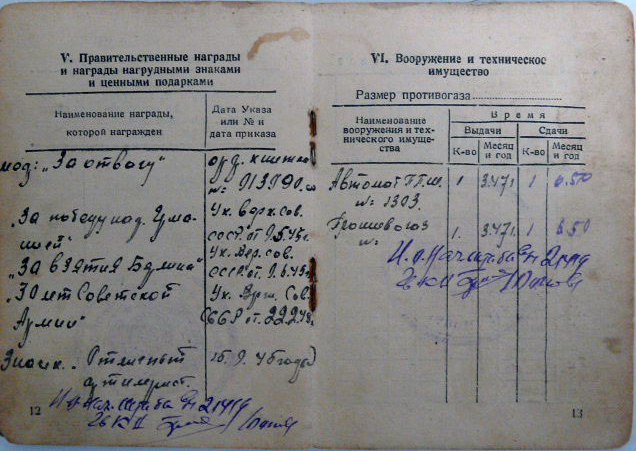 V. Правительственные награды
и награды нагрудными знаками
и ценными подарками
Наименование награды,
которой награжден
Дата Указа
или № и
дата приказа
мед: „За отвагу"
орд. книжка
№ 913790
„За победу над Гума-
нией"
Ук. верх. сов.
СССР от 9.5.45г.
„За взятия Берлина"
Ук. Вер. сов.
СССР от 9.6.45г.
„30 лет Советской
Армии"
Ук. Вер. Сов.
СССР от 22.2.48г.
Значик. Отличный
артилерист.
15. 9. 45 года
И.о. Нач. Штаба
26 КП
12
VI. Вооружение и техническое
имущество
Размер противогаза
Наименование
вооружения и тех-
нического имуще-
ства
Время
Выдачи
Сдачи
К-во
Месяц
и год
К-во
Месяц
и год
Автомат
№ 1303.
1
3.47г.
1
6.50
№
1.
3.47г.
1
6.50
И.о. Нач. Штаба
26 КП
13